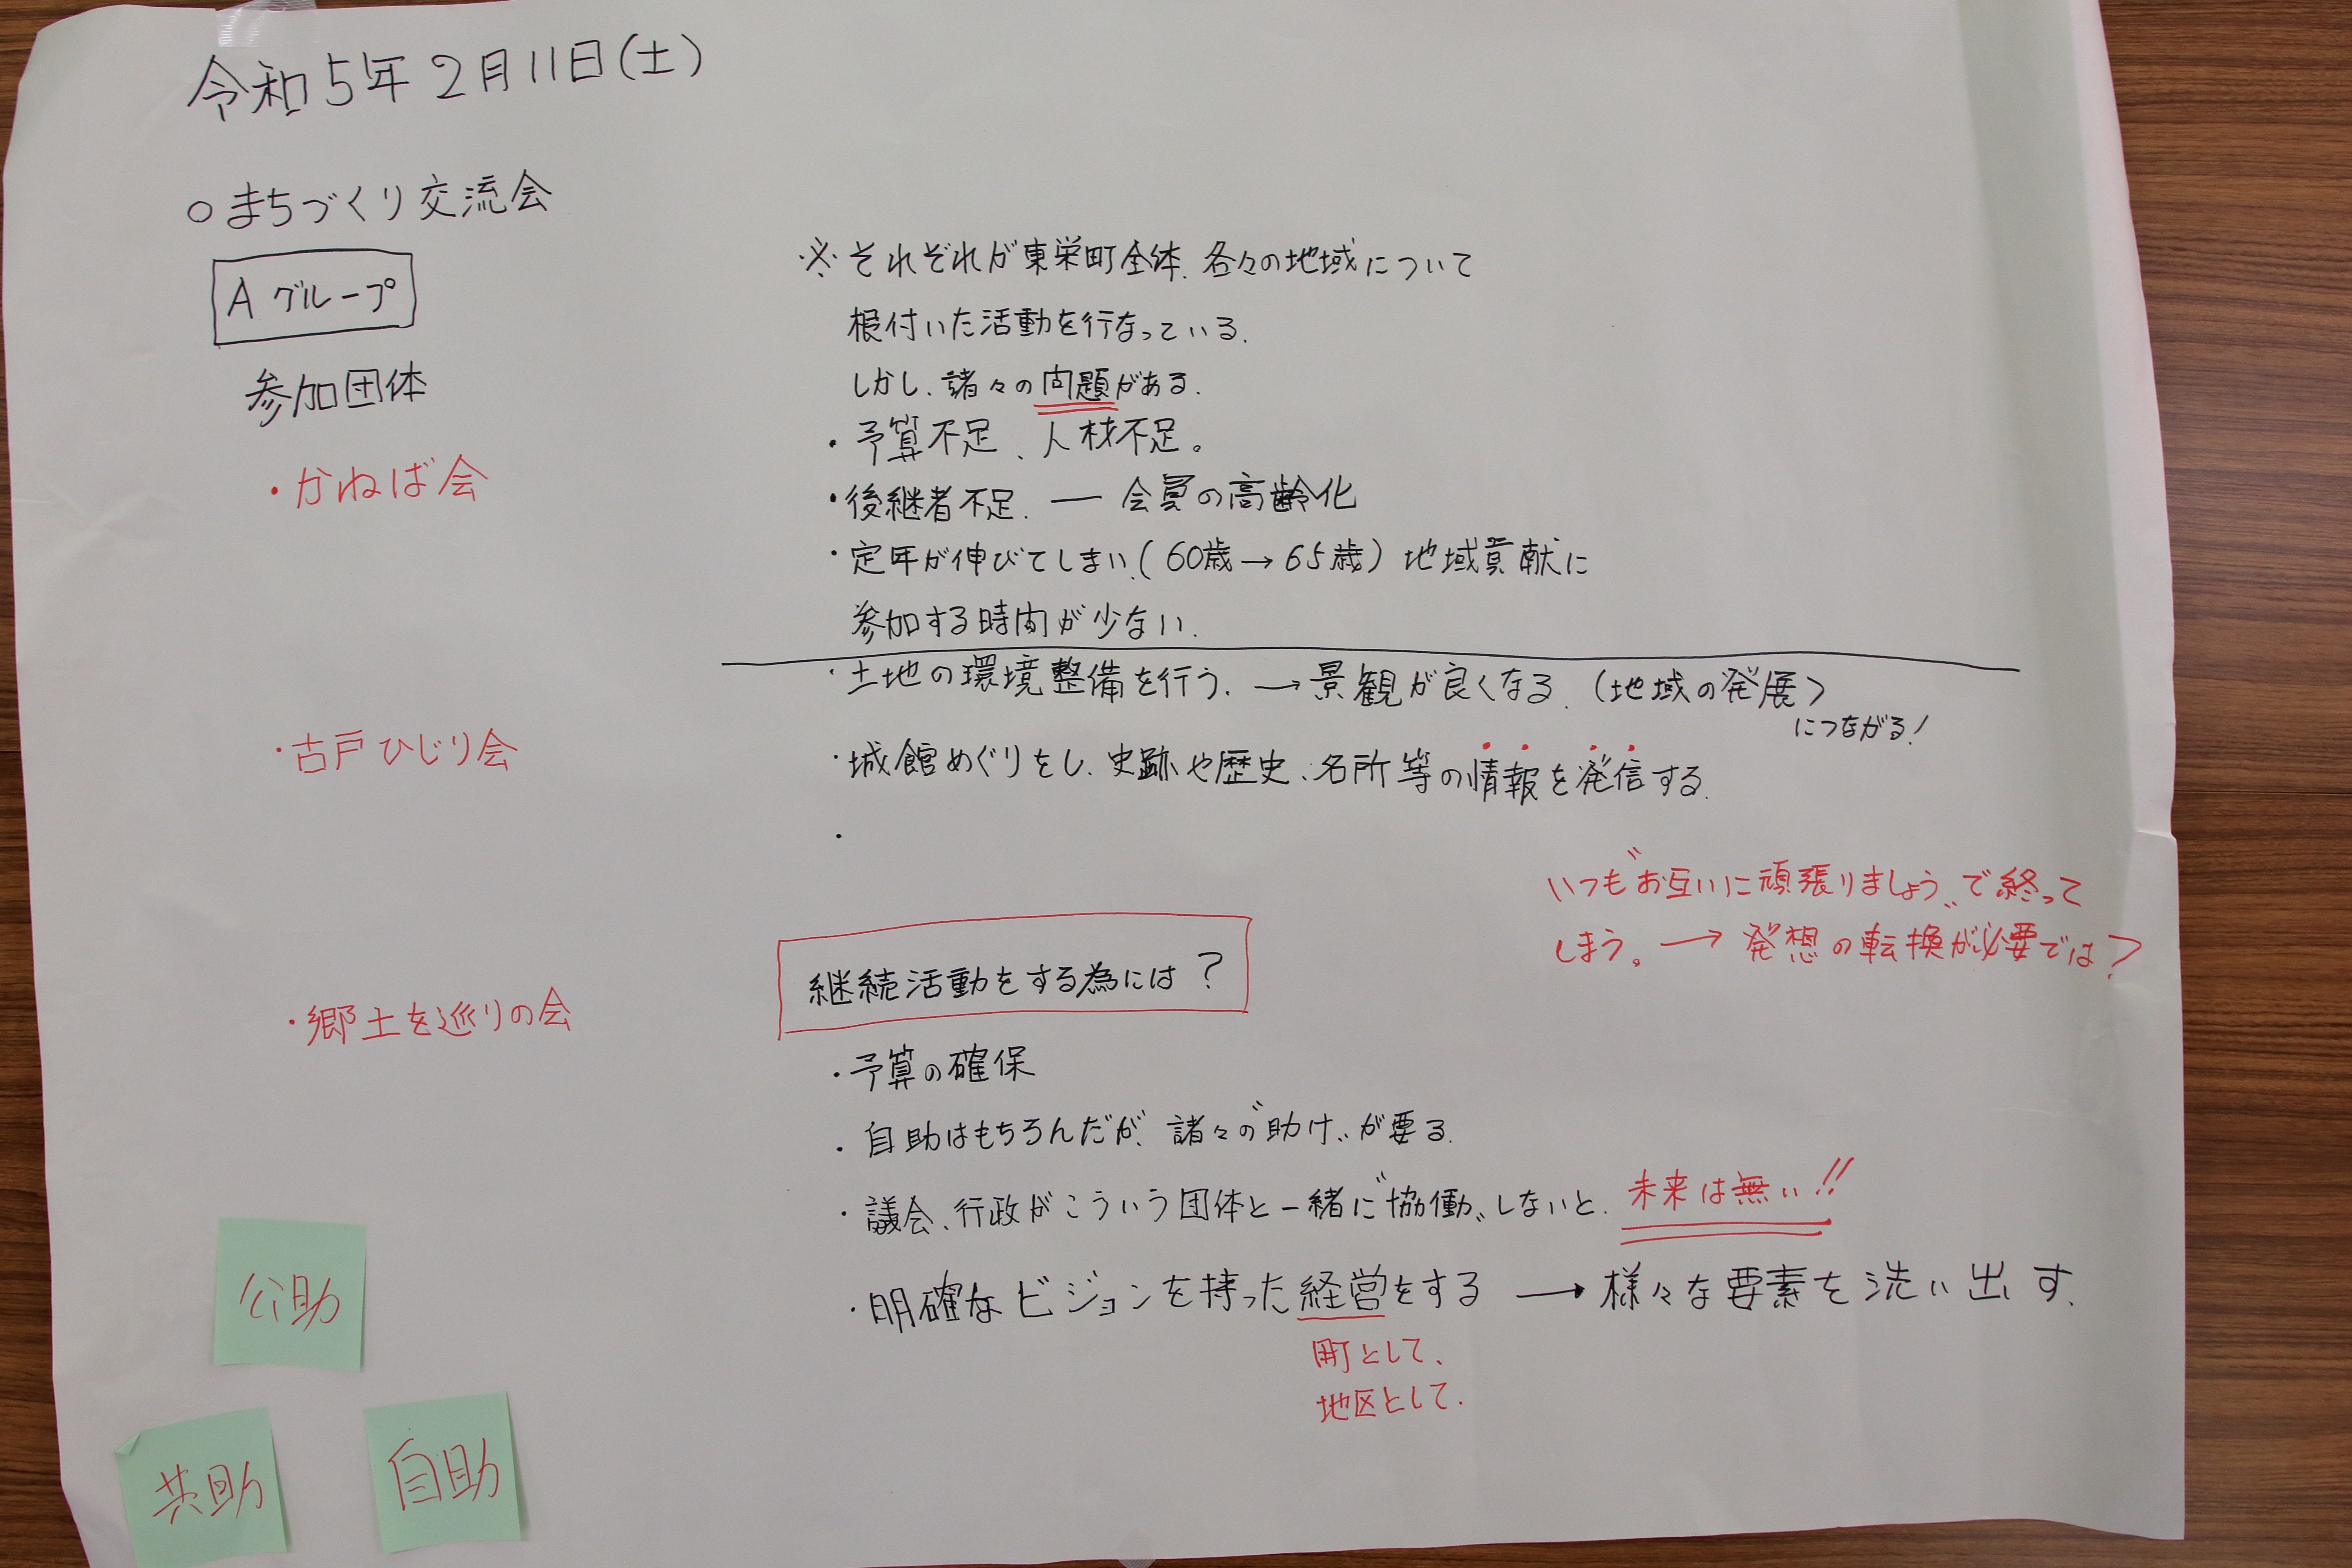 令和5年2月11日(土)
○まちづくり交流会
Aグループ
参加団体
・かねば会
・古戸ひじり会
・郷土を巡りの会
公助
共助
自助
※それぞれが東栄町全体、各々の地域について
根付いた活動を行なっている。
しかし、諸々の問題がある。
・予算不足、人材不足。
・後継者不足. ― 会員の高齢化
・定年が伸びてしまい、(60歳→65歳)地域貢献に
参加する時間が少ない.
・土地の環境整備を行う. →景観が良くなる. (地域の発展)
につながる!
・城館めぐりをし、史跡や歴史、名所等の情報を発信する.
・
いつも〝お互いに頑張りましょう〟で終って
しまう。→ 発想の転換が必要では?
継続活動をする為には?
・予算の確保
・自助はもちろんだが、諸々の〝助け〟が要る.
・議会、行政がこういう団体と一緒に〝協働〟しないと. 未来は無い!!
・明確なビジョンを持った経営をする → 様々な要素を洗い出す.
町として、
地区として.